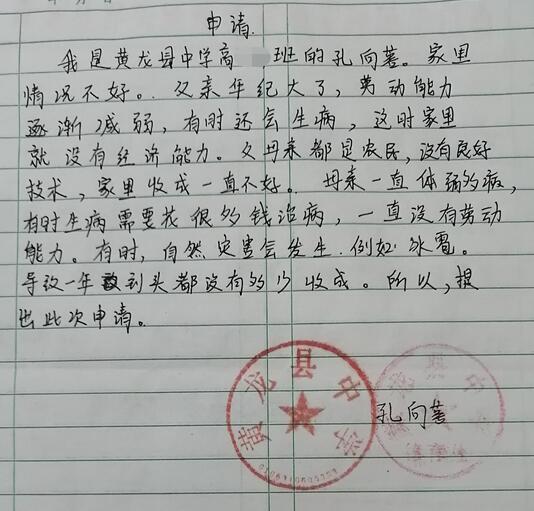 申请
我是黄龙县中学高 班的孔向善。家里
情况不好。父亲年纪大了，劳动能力
逐渐减弱，有时还会生病，这时家里
就没有经济能力。父母亲都是农民，没有良好
技术，家里收成一直不好。母亲一直体弱多病，
有时生病需要花很多钱治病，一直没有劳动
能力。有时，自然灾害会发生.例如冰雹。
导致一年到头都没有多少收成。所以，提
出此次申请。
黄龙县中学
孔向善